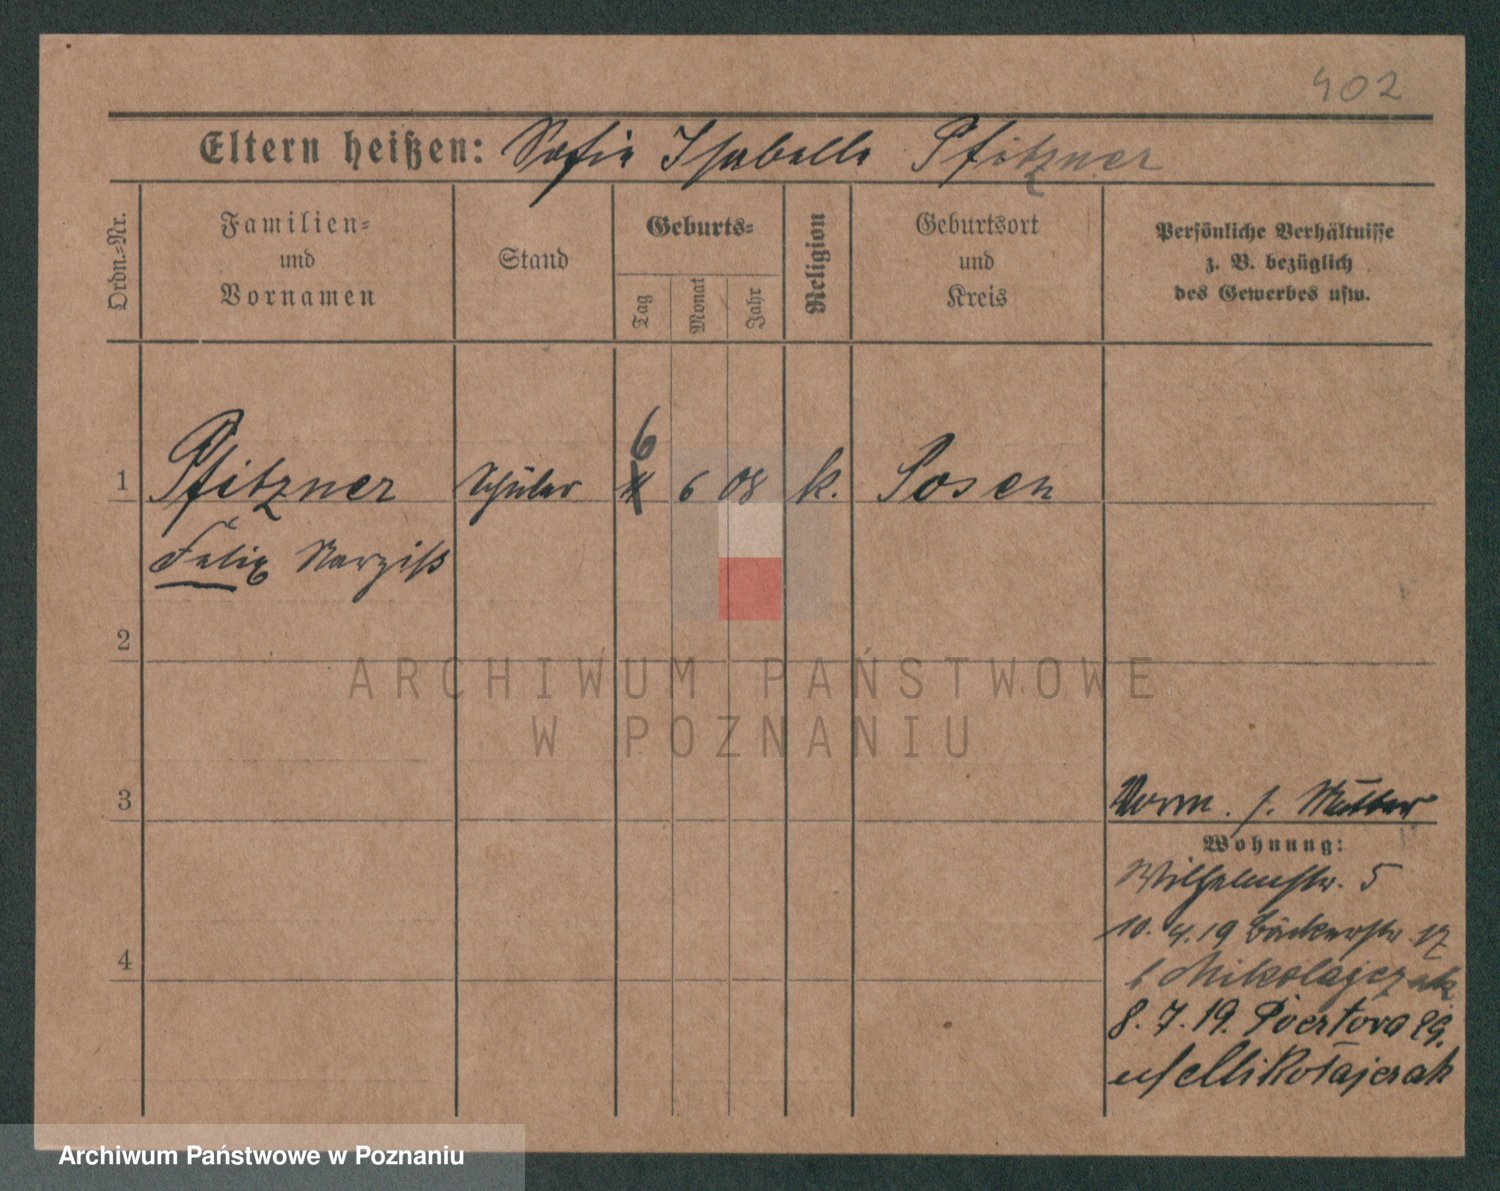 402
Eltern heißen: Sofie Isabella Pfitzner
Ordn.-Nr.
Familien-
und
Vornamen
Stand
Geburts-
Tag
Monat
Jahr
Religion
Geburtsort
und
Kreis
Persönliche Verhältnisse
z. B. bezüglich
des Gewerbes usw.
6
1 Pfitzner Schüler 6 08 k. Posen
Felix Narziß
2
ARCHIWUM PAŃSTWOWE
W POZNANIU
3
Vorm. s. Mutter
Wohnung:
Wilhelmstr. 5
10. 4. 19 Bäckerstr. 17
b Mikolajczak
4
8. 7. 19.
Mikołajczak
Archiwum Państwowe w Poznaniu